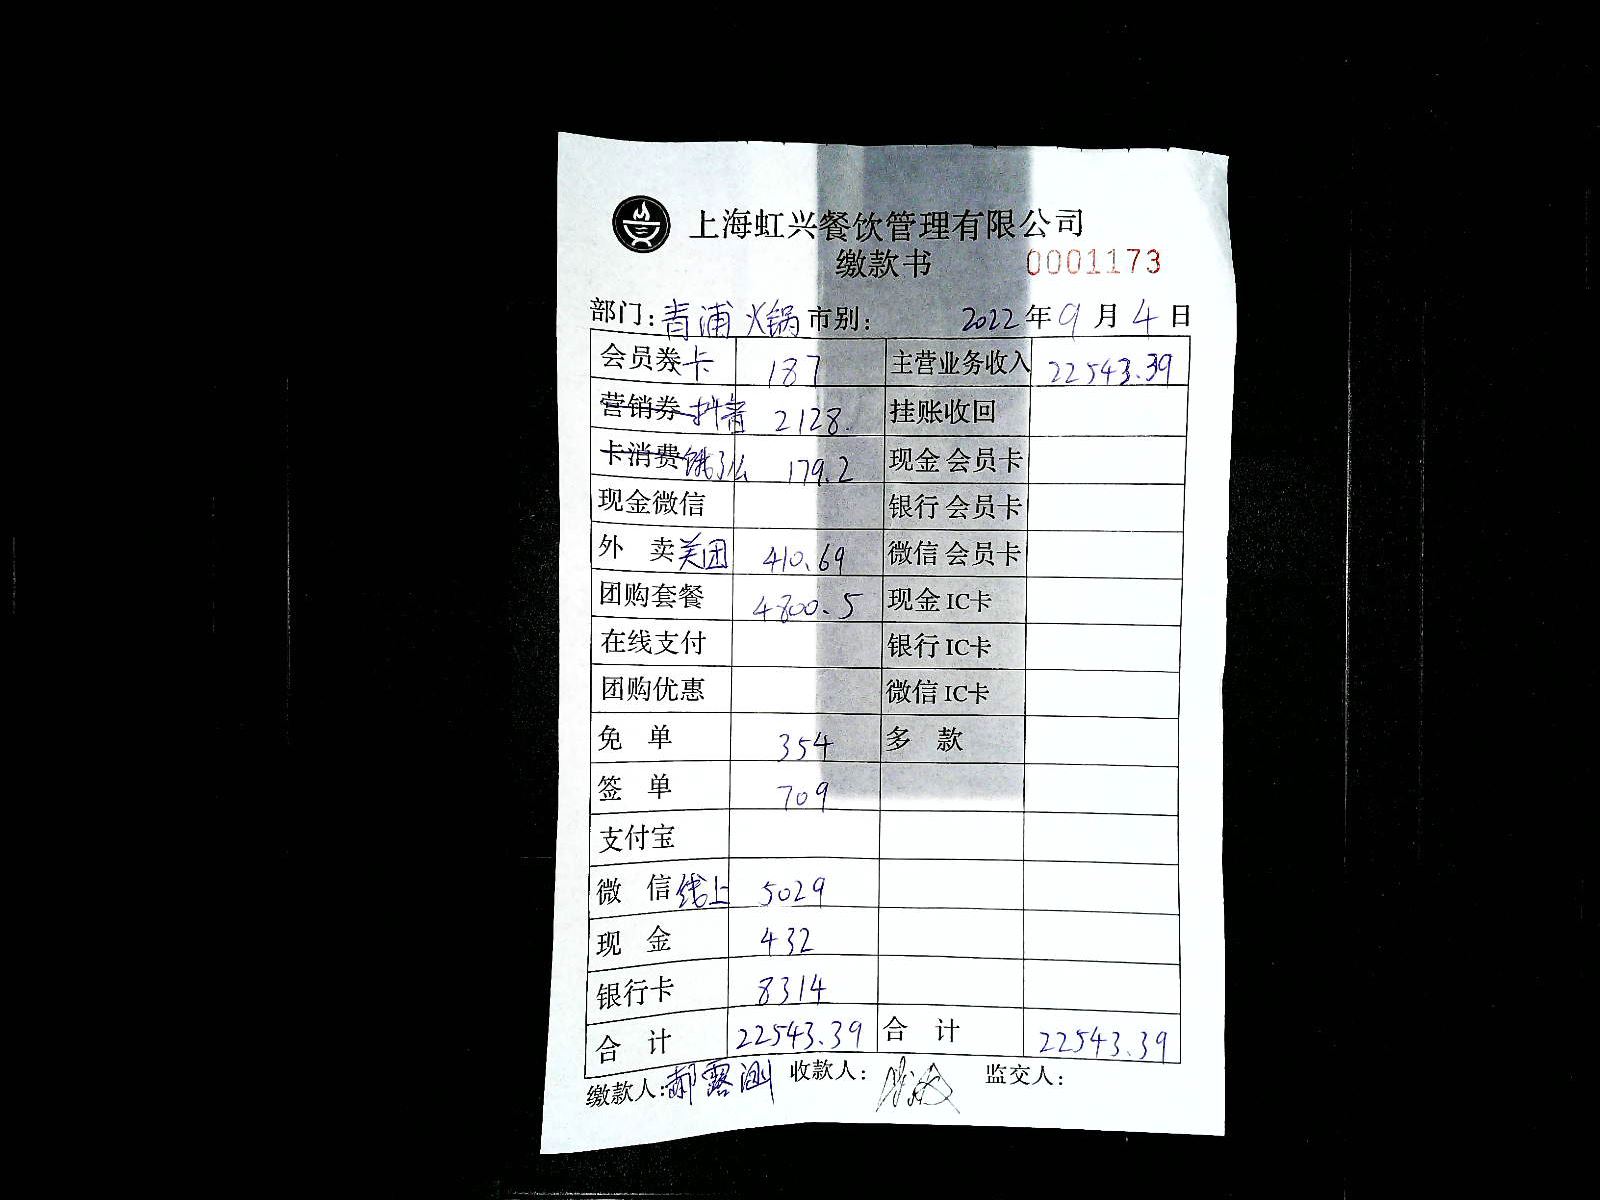 上海虹兴餐饮管理有限公司
缴款书 0001173
部门：青浦火锅 市别： 2022年9月4日
会员券卡 187 主营业务收入 22543.39
营销券 抖音 2128. 挂账收回
卡消费 饿了么 179.2 现金会员卡
现金微信 银行会员卡
外卖美团 410.69 微信会员卡
团购套餐 4800.5 现金IC卡
在线支付 银行IC卡
团购优惠 微信IC卡
免单 354 多款
签单 709
支付宝
微信线上 5029
现金 432
银行卡 8314
合计 22543.39 合计 22543.39
缴款人：郝露 收款人： 监交人：